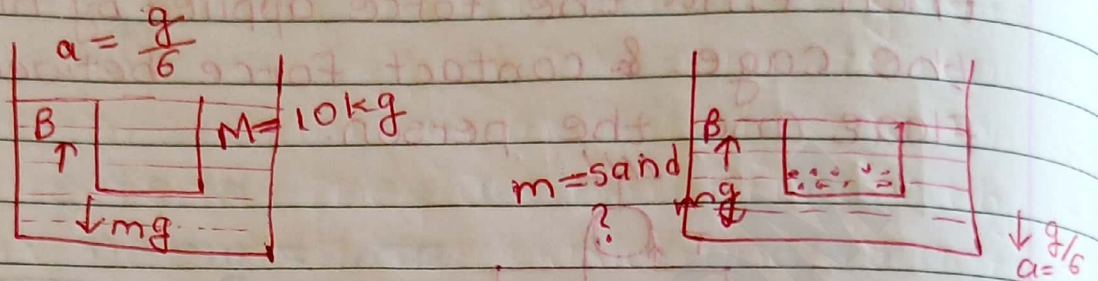 a = g/6
B ↑ M = 10kg
↓ mg
B ↑
m = sand
mg
?
↓ g/6
a =